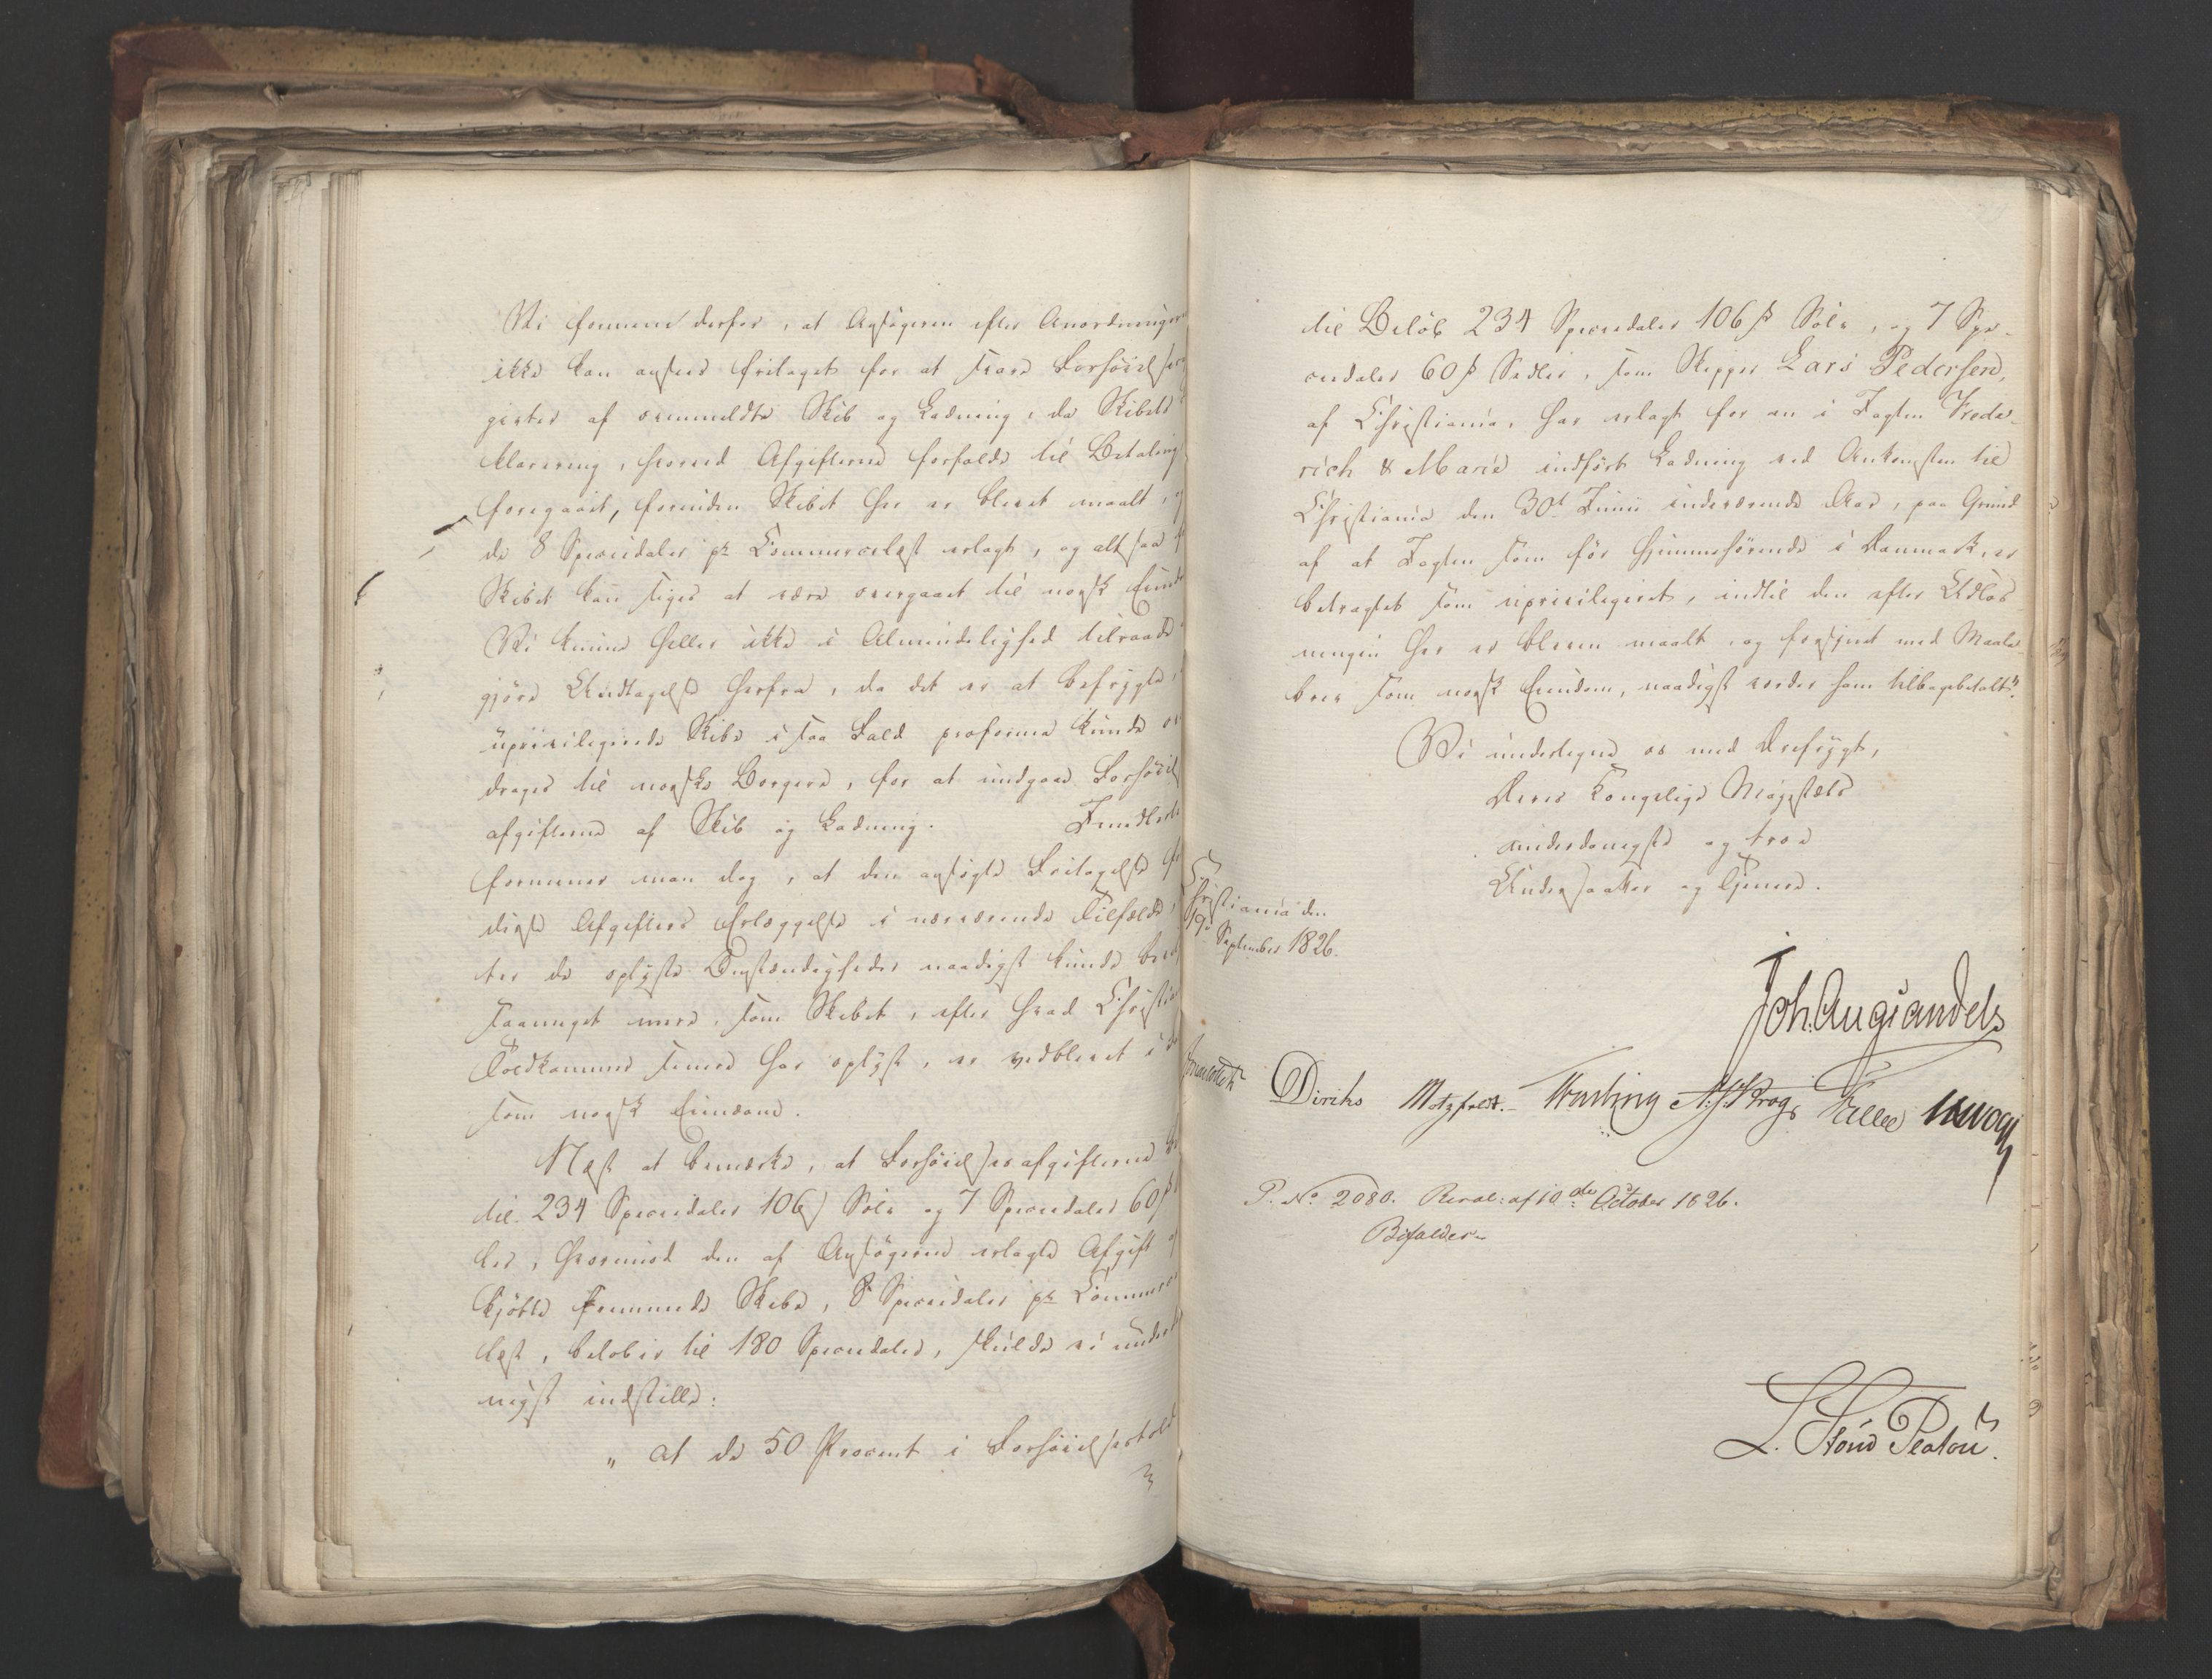 Vi formene derfor, at Ansøgeren efter Anordningerne
ikke kan ansees fritaget for at svare Forhøielses
givter af ommeldte Skib og Ladning, da Skibets
klarering, hvorved Afgifterne forfalde til Betaling
foregaaet, forinden Skibet her er blevet maalt, og
de 8 Speciedaler pr Commercelæst erlagt, og altsaa
Skibet kan siges at være overgaaet til norsk Eiendom
Vi kunne heller ikke i Almindelighed tilraade
gjøre Undtagelse herfra, da det er at befrygte,
uprivilegerede Skibe i saa Fald proforma kunde over
drages til norske Borgere, for at undgaae Forhøiel
afgifterne af Skib og Ladning. Imidlertid
formener man dog, at den ansøgte Fritagelse for
disse Afgifters Erlæggelse i nærværende Tilfælde,
ter de oplyste Omstændigheder naadigst kunde bevil
saameget mere, som Skibet, efter hvad Christia
Toldkammer senere har oplyst, er vedblevet i
som norsk Eiendom.
Næst at bemærke, at Forhøielsesafgifterne
til 234 Speciedaler 106 ß Sølv og 7 Speciedaler 60 ß
ler, hvorimod den af Ansøgeren erlagte Afgift af
kjøbte fremmede Skibe, 8 Speciedaler pr Commerce
læst, beløber til 180 Speciedaler, skulde vi underda
nigst indstille:
„ at de 50 Procent i Forhøielsestold
til Beløb 234 Speciedaler 106 ß Sølv, og 7 Spe-
ciedaler 60 ß Sedler, som Skipper Lars Pedersen,
af Christiania, har erlagt for en i Jagten Frede-
rich & Marie indført Ladning ved Ankomsten til
Christiania den 30t Junii indeværende Aar, paa Grund
af at Jagten som før hjemmehørende i Danmark, er
betragtet som uprivilegeret, indtil den efter Udlos-
ningen her er bleven maalt og forsynet med Maale-
brev som norsk Eiendom, naadigst vorder ham tilbagebetalt“.
Vi undertegne os med Ærefrygt,
Deres Kongelige Majestæts
underdanigste og troe
Undersaatter og Tjenere.
Christiania den
19de September 1826.
Joh. Aug: Sandels
Diriks Motzfeldt. Treschow Krog Fasting
P. No. 2080. Resol: af 10de October 1826.
Bifaldes
L. Stoud Platou.